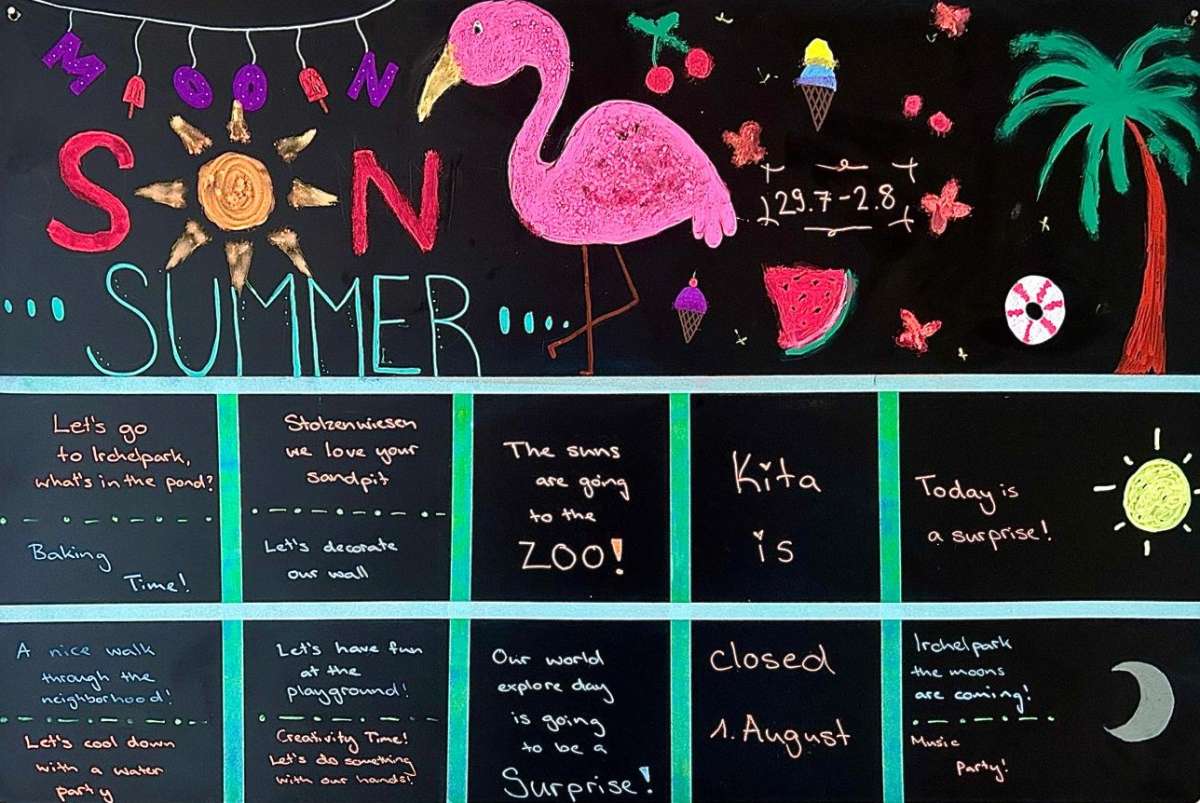 MOON
SUN
29.7-2.8
SUMMER
Let's go
to Irchelpark,
what's in the pond?
Baking
Time!
Stolzenwiesen
we love your
sandpit
Let's decorate
our wall
The suns
are going
to the
ZOO!
Kita
is
Today is
a surprise!
A nice walk
through the
neighborhood!
Let's cool down
with a water
party
Let's have fun
at the
playground!
Creativity Time!
Let's do something
with our hands!
Our world
explore day
is going
to be a
Surprise!
closed
1. August
Irchelpark
the moons
are coming!
Music
Party!